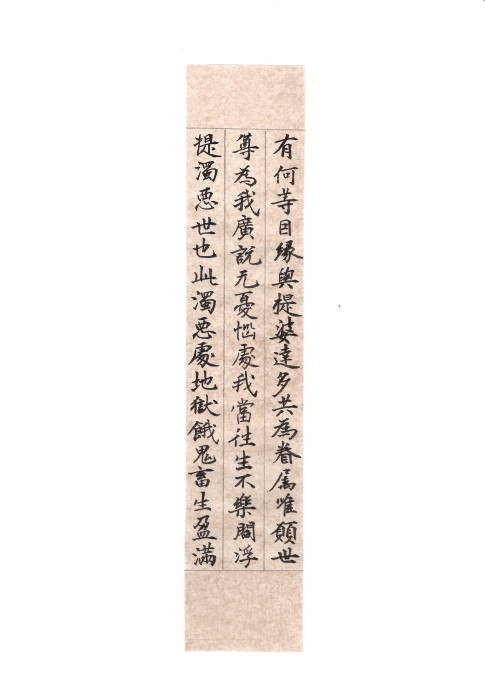 有何等因緣與提婆達多共為眷属唯願世
尊為我廣説无憂惱處我當往生不樂閻浮
提濁悪世也此濁悪處地獄餓鬼畜生盈滿